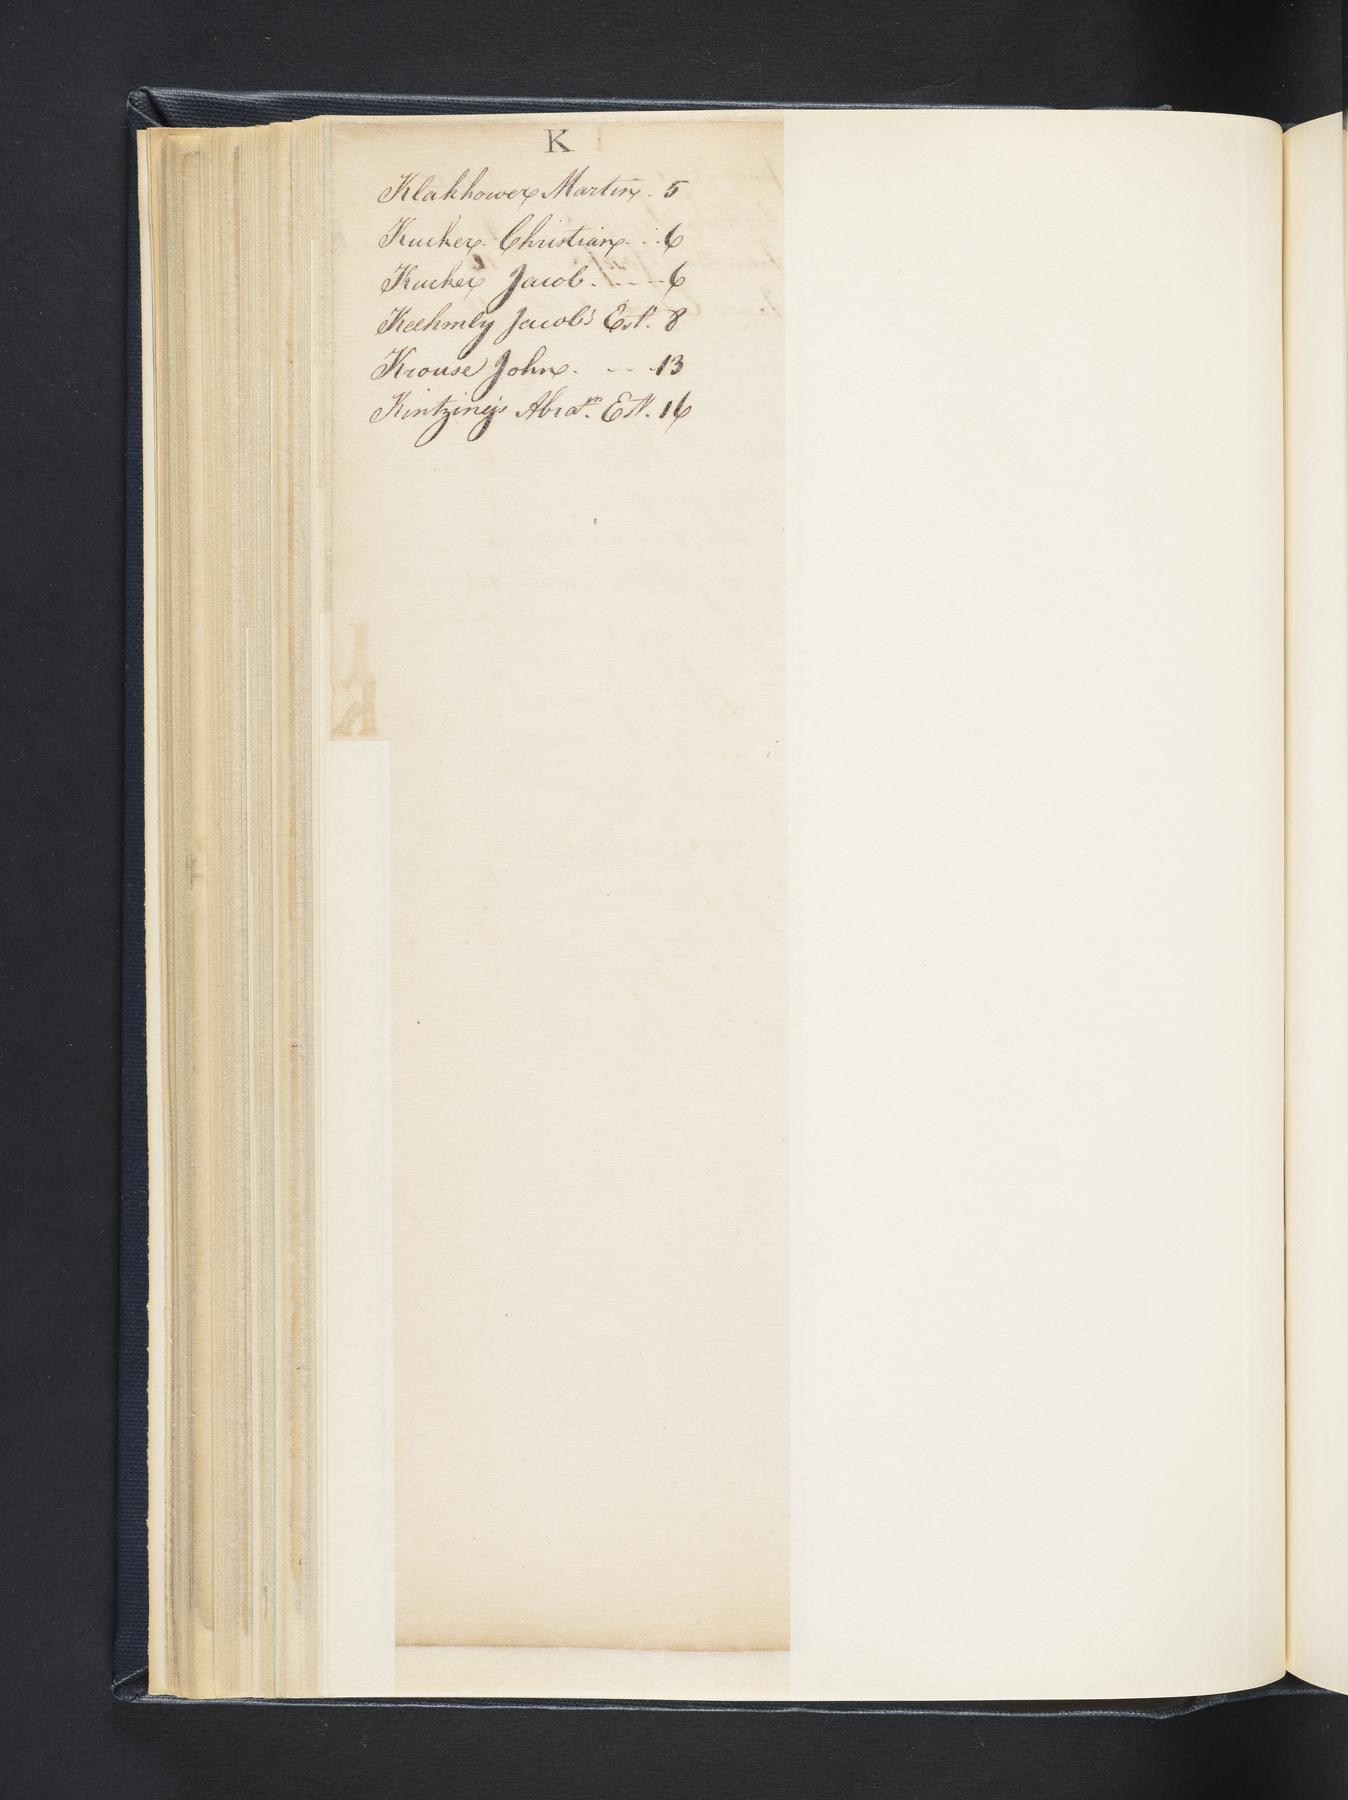 K
Klakhower Martin. 5
Kucher. Christian. .. 6
Kucher Jacob. ---- 6
Keehmly Jacob's Est. 8
Krouse John. - - - 13
Kintzing's Abram. Est. 16
K